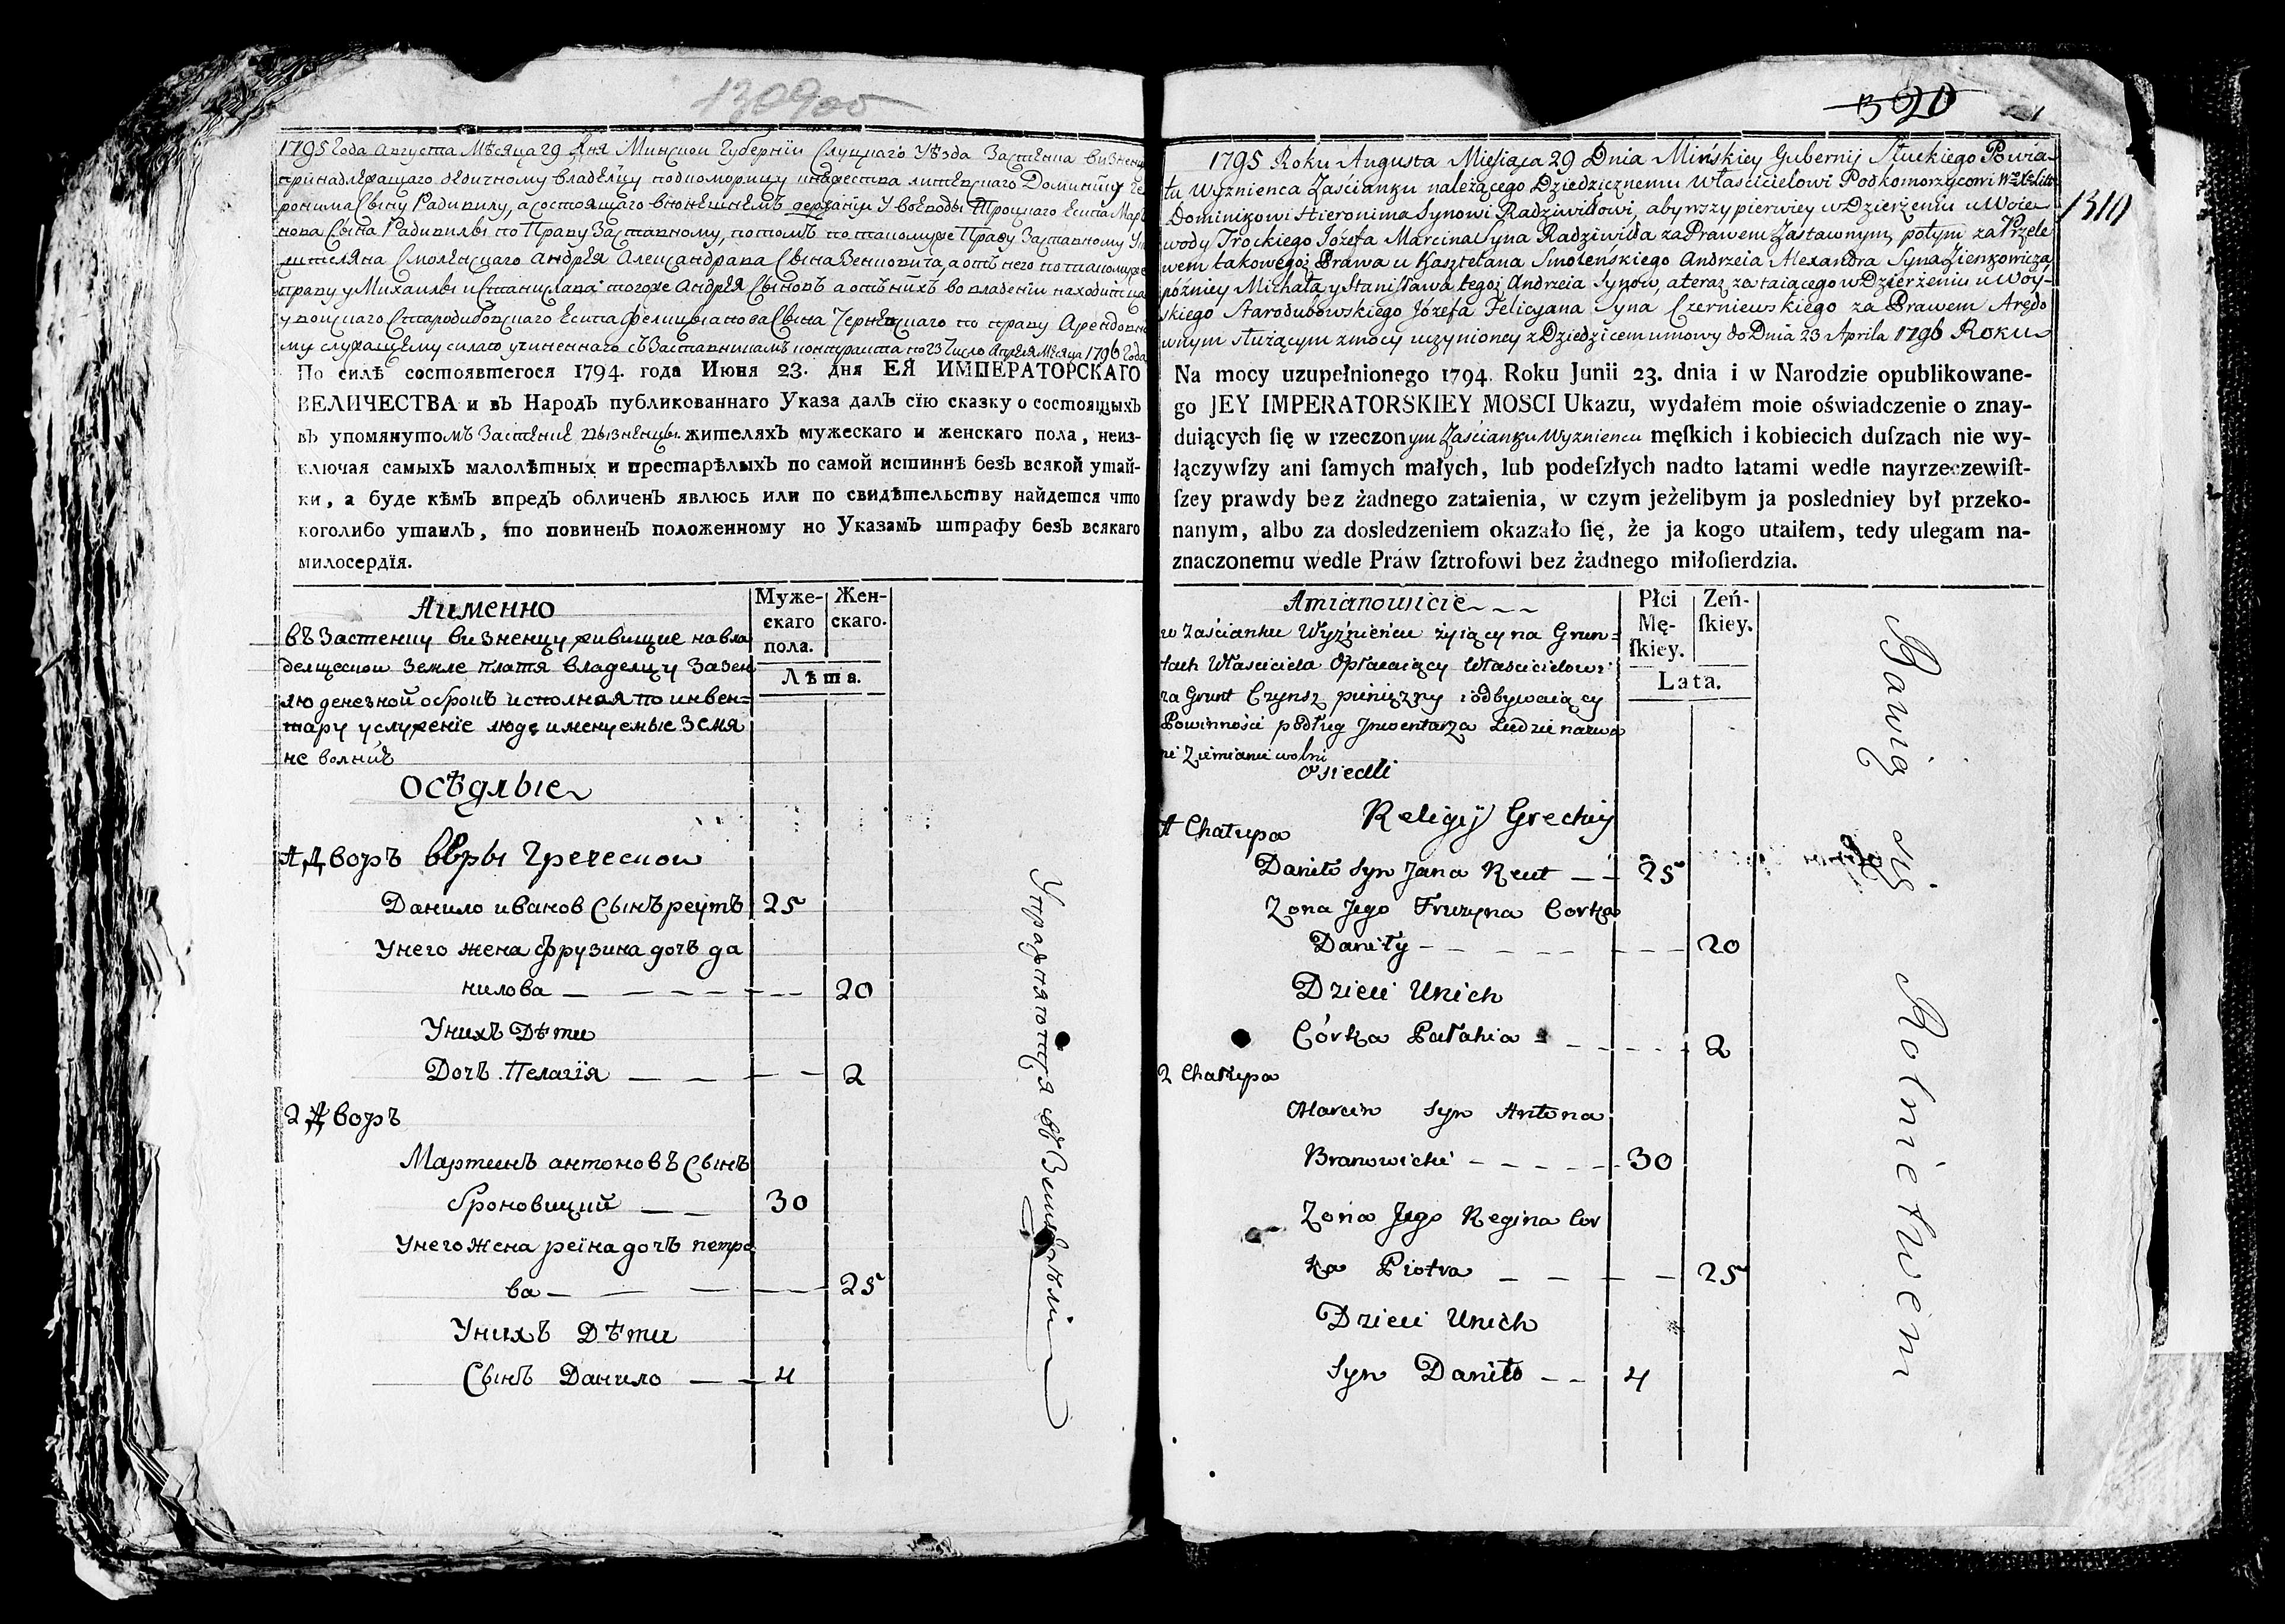 1309 об
1795 Года Августа Мѣсяца 29 Дня Минской Губернїи Слуцкаго Уѣзда Застѣнка Визненц
принадлежащаго дедичному владѣлцу подкоморицу княжества литевскаго Доминику Ге
ронима Сыну Радивилу, а состоящаго в нонешнемъ держанїи У воеводы Троцкаго Есипа Мар
нова Сына Радивилы по Праву Заставному, потомъ по таковому же Праву Заставному У
кастеляна Смоленскаго Андрея Александрова Сына Зенковича, а отъ него по таковому же
праву у Михаила и Станислава тогоже Андрея Сыновъ а отъ нихъ во владенїи находитца
у войскаго Стародубовскаго Есипа Фелицыанова Сына Черневскаго по праву Арендовно
му служащему силою учиненнаго съ Заставникамъ контракта по 23 Число Апреля Месяца 1796 Года
По силѣ состоявшегося 1794. года Июня 23. дня ЕЯ ИМПЕРАТОРСКАГО
ВЕЛИЧЕСТВА и въ Народъ публикованнаго Указа далъ сїю сказку о состоящыхъ
въ упомянутомъ Застенке Визненцы жителяхъ мужескаго и женскаго пола, неиз-
ключая самыхъ малолѣтныхъ и престарѣлыхъ по самой истиннѣ безъ всякой утай-
ки, а буде кѣмъ впредъ обличенъ явлюсь или по свидѣтельству найдется что
коголибо утаилъ, то повиненъ положенному но Указамъ штрафу безъ всякаго
милосердїя.
Аименно
Муже-
скаго
пола.
Жен-
скаго.
Лѣта.
въ Застенцу визненцу живущие навла
делщеской Земле платя владелцу Зазем
лю денежной оброкъ исполная по инвен=
тару услужение люде именуемые Земя
не волнїе
Осѣдлые
1 Дворъ вѣры Греческой
Данило иванов Сынъ реутъ 25
Унего жена фрузина дочъ да
нилова — — — — 20
Унихъ Дѣти
Дочъ Пелагїя — — — — 2
2 Дворъ
Мартинъ антоновъ Сынъ
броновицкий — — 30
Унего жена реїна дочъ петро
ва — — — — 25
Унихъ Дѣти
Сынъ Данило — — 4
320
1310
1795 Roku Augusta Miesiąca 29 Dnia Mińskiey Gubernij Słuckiego Powia-
tu Wyznienca Zaścianku należącego Dziedzicznemu Właścicielowi Podkomorzycowi Wgo Xa Litt
Dominikowi Hieronima Synowi Radziwiłowi, aby wszy pierwiey w Dzierżeniu u Woie-
wody Trockiego Józefa Marcina Syna Radziwiła za Prawem Zastawnym, potym za Przele
wem takowegoż Prawa u Kasztelana Smolenskiego Andrzeia Alexandra Syna Zienkowicza,
pózniey Michała y Stanisława tegoż Andrzeia Synow, a teraz zostaiącego w Dzierżeniu u Woy-
skiego Starodubowskiego Józefa Felicyana Syna Czerniewskiego za Prawem Arędo
wnym służącym z mocy uczynioney z Dziedzicem umowy do Dnia 23 Aprila 1796 Roku
Na mocy uzupełnionego 1794. Roku Junii 23. dnia i w Narodzie opublikowane-
go JEY IMPERATORSKIEY MOSCI Ukazu, wydałem moie oświadczenie o znay-
duiących ſię w rzeczonym Zaścianku Wyzniencu męſkich i kobiecich duſzach nie wy-
łączywſzy ani ſamych małych, lub podeſzłych nadto latami wedle nayrzeczewiſt-
ſzey prawdy bez żadnego zataienia, w czym jeżelibym ja posledniey był przeko-
nanym, albo za dosledzeniem okazało ſię, że ja kogo utaiłem, tedy ulegam na-
znaczonemu wedle Praw ſztrofowi bez żadnego miłoſierdzia.
Amianowicie
Płci
Mę-
ſkiey.
Zeń-
ſkiey.
Lata.
w Zaścianku Wyźnieńcu żyiący na Grun=
tach Właściciela Opłacaiący Właścicielowi
za Grunt Czynsz pieniężny i odbywaiący
Powinności podług Jnwentarza Ludzie nazwa
ni Ziemianie wolni
Osiedli
Religij Greckiy
1 Chałupa
Daniło Syn Jana Reut — — 25
Zona Jego Fruzyna Corka
Daniły — — — — 20
Dzieci Unich
Córka Pałahia — — — — 2
2 Chałupa
Marcin Syn Antona
Branowicki — — — — 30
Zona Jego Regina Cor
ka Piotra — — — — 25
Dzieci Unich
Syn Daniło — — 4
Упражняютца въ Земледѣлїи
Bawią się Rolnictwem